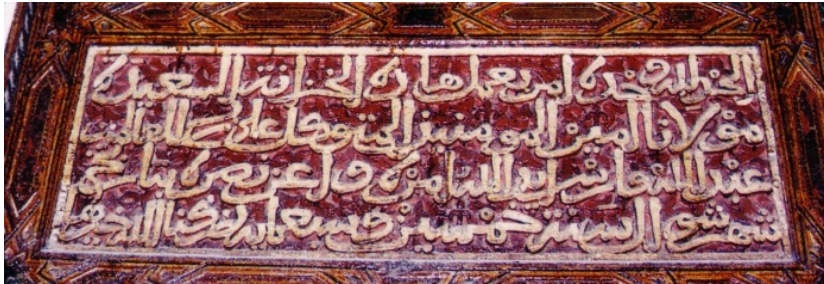 الحمد لله وحده امر بعمل هاذه الخزانة السعيدة
مولانا امير المومنين المتوكل على رب العالمين
عبد الله فارس ايد الله امره و اعز نصره بتاريخ
شهر شوال سنة خمسين و سبعماية رزقنا الله خيرها